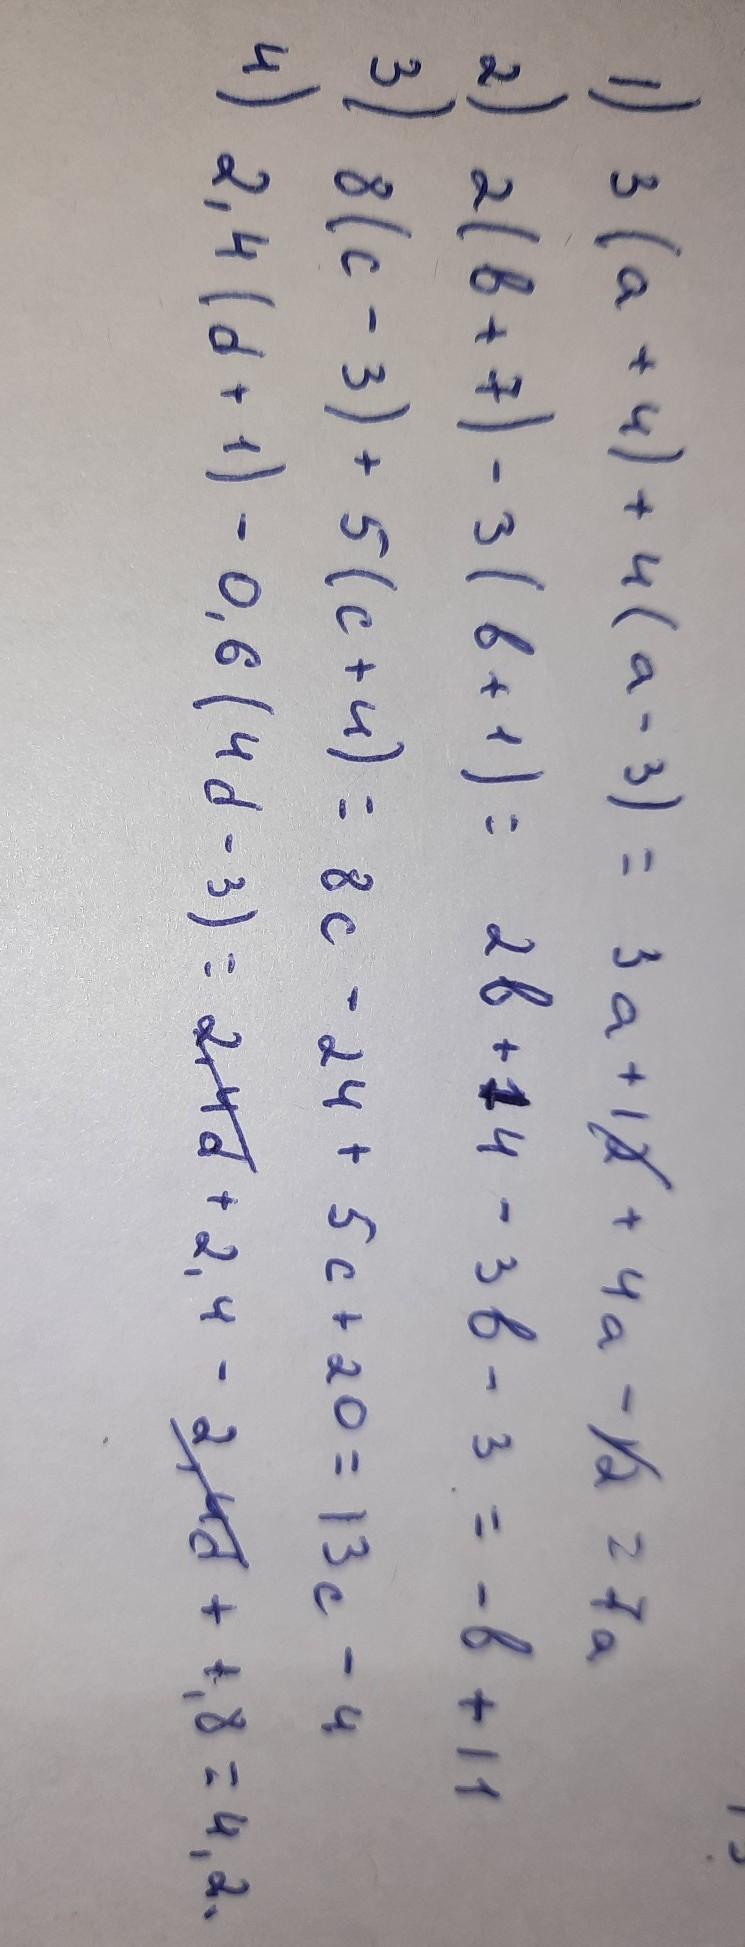 1) 3(a + 4) + 4(a - 3) = 3a + 12 + 4a - 12 = 7a
2) 2(b + 7) - 3(b + 1) = 2b + 14 - 3b - 3 = -b + 11
3) 8(c - 3) + 5(c + 4) = 8c - 24 + 5c + 20 = 13c - 4
4) 2,4(d + 1) - 0,6(4d - 3) = 2,4d + 2,4 - 2,4d + 1,8 = 4,2.